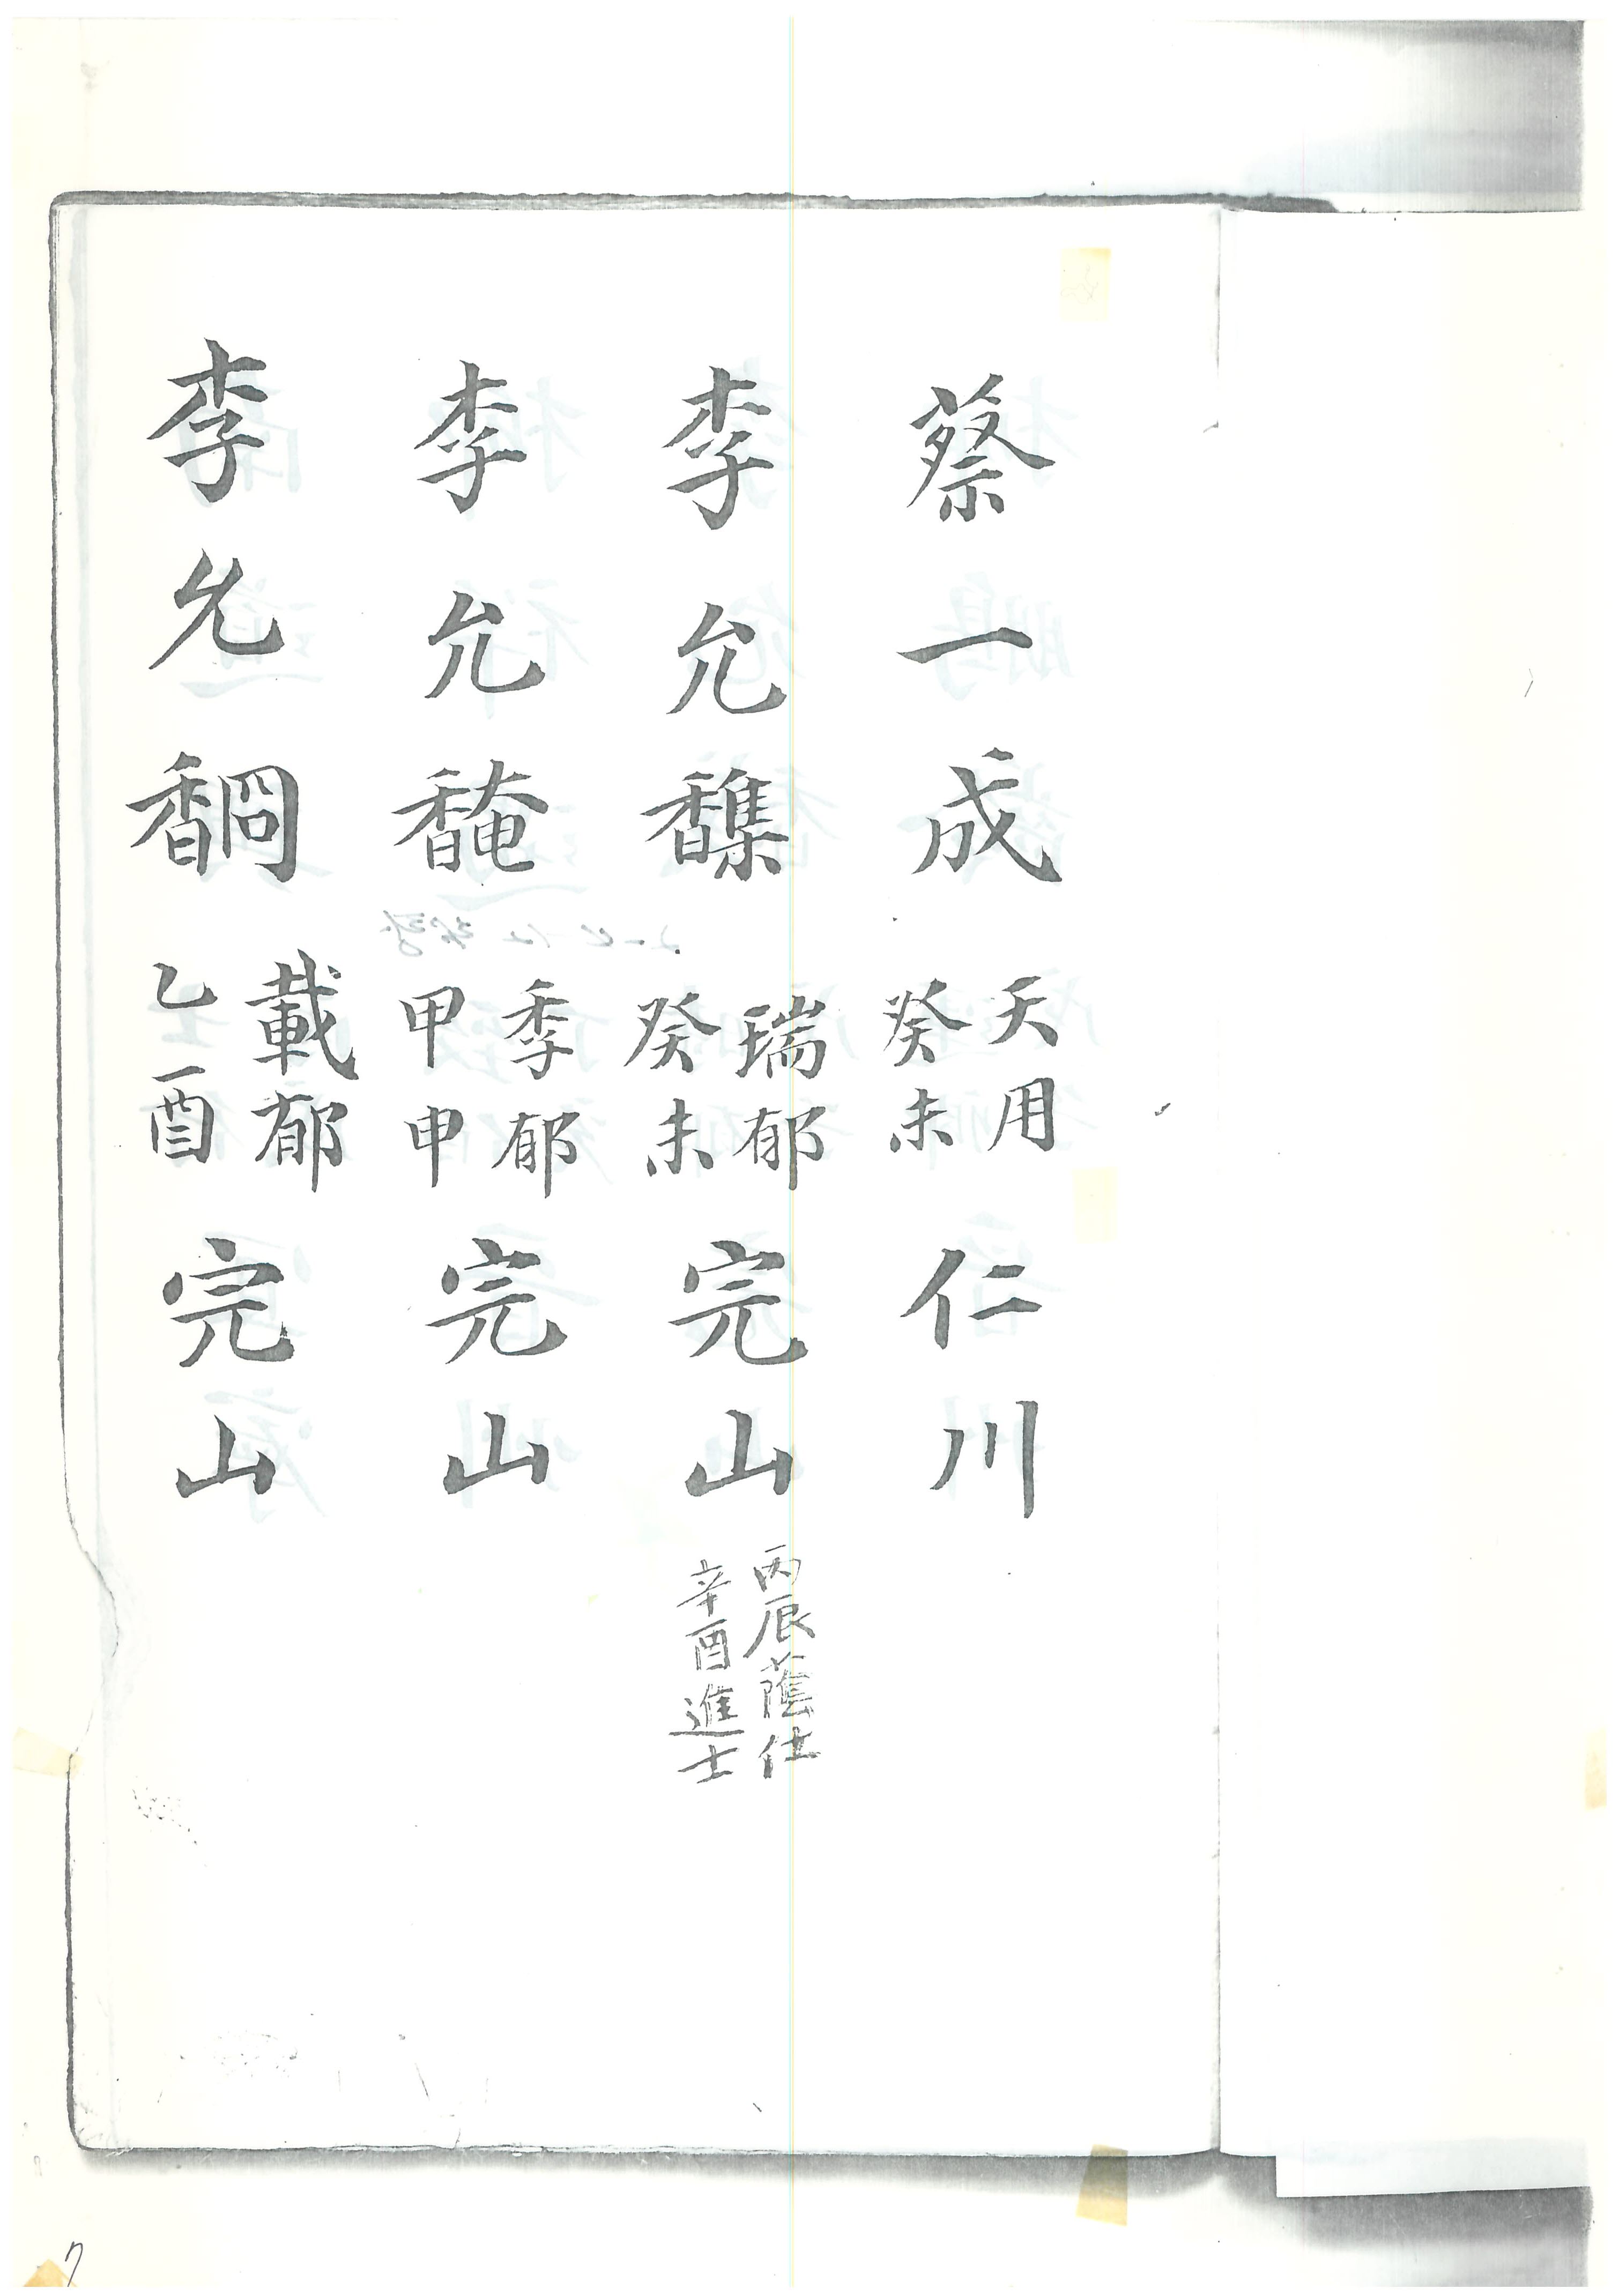 蔡一成 天用 癸未 仁川
李允馦 瑞郁 癸未 完山 丙辰蔭仕 辛酉進士
李允馣 季郁 甲申 完山
李允 載郁 乙酉 完山
7